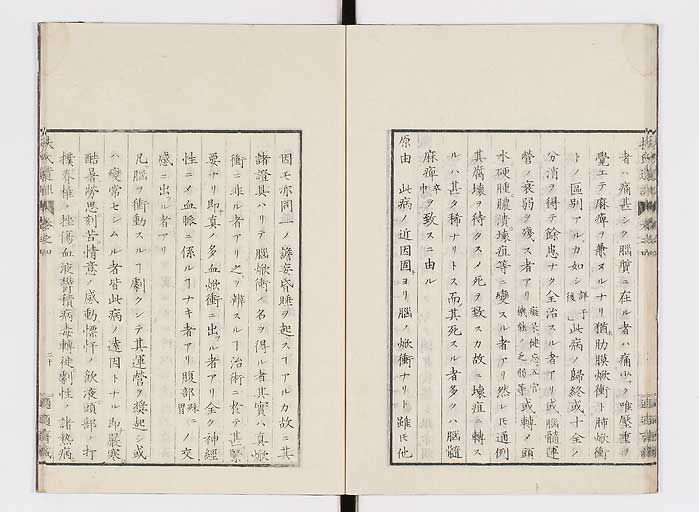 者ハ痛甚シク腦髒ニ在ル者ハ痛少ク唯壓重ヲ
覺エテ麻痺ヲ兼ヌルナリ猶肋膜焮衝ト肺焮衝
トノ區別アルカ如シ詳于後此病ノ歸終或十全ノ
分消ヲ得テ餘患ナク全治スル者アリ或腦髓運
營ノ衰弱ヲ殘ス者アリ癡呆健忘五官嬾敏ノ之弱等或轉〆頭
水硬腫膿潰壞疽等ニ變スル者アリ然レ𪜈通例
其腐壞ヲ待タスノ死ヲ致スカ故ニ壞疽ニ轉ス
ルハ甚タ稀ナリトス而其死スル者多クハ腦髓
麻痺卒中ヲ致スニ由ル
原由 此病ノ近因固ヨリ腦ノ焮衝ナリト雖𪜈他
因モ亦同一ノ譫妄昏睡ヲ起スヿアルカ故ニ其
諸證具ハリテ腦焮衝ノ名ヲ得ル者其實ハ真焮
衝ニ非ル者アリ之ヲ辨スルヿ治術ニ於テ甚緊
要ナリ即真ノ多血焮衝ニ出ル者アリ全ク神經
性ニ〆血脈ニ係ルヿナキ者アリ腹部殊ニ胃ノ交
感ニ出ル者アリ
凡腦ヲ衝動スルヿ劇クシテ其運營ヲ奬起シ或
ハ變常セシムル者皆此病ノ遠因トナル即嚴寒
酷暑勞思刻苦情意ノ感動慓悍ノ飲液頭部ノ打
撲脊椎ノ挫傷血液鬱積病毒轉徙劇性ノ諸熱病